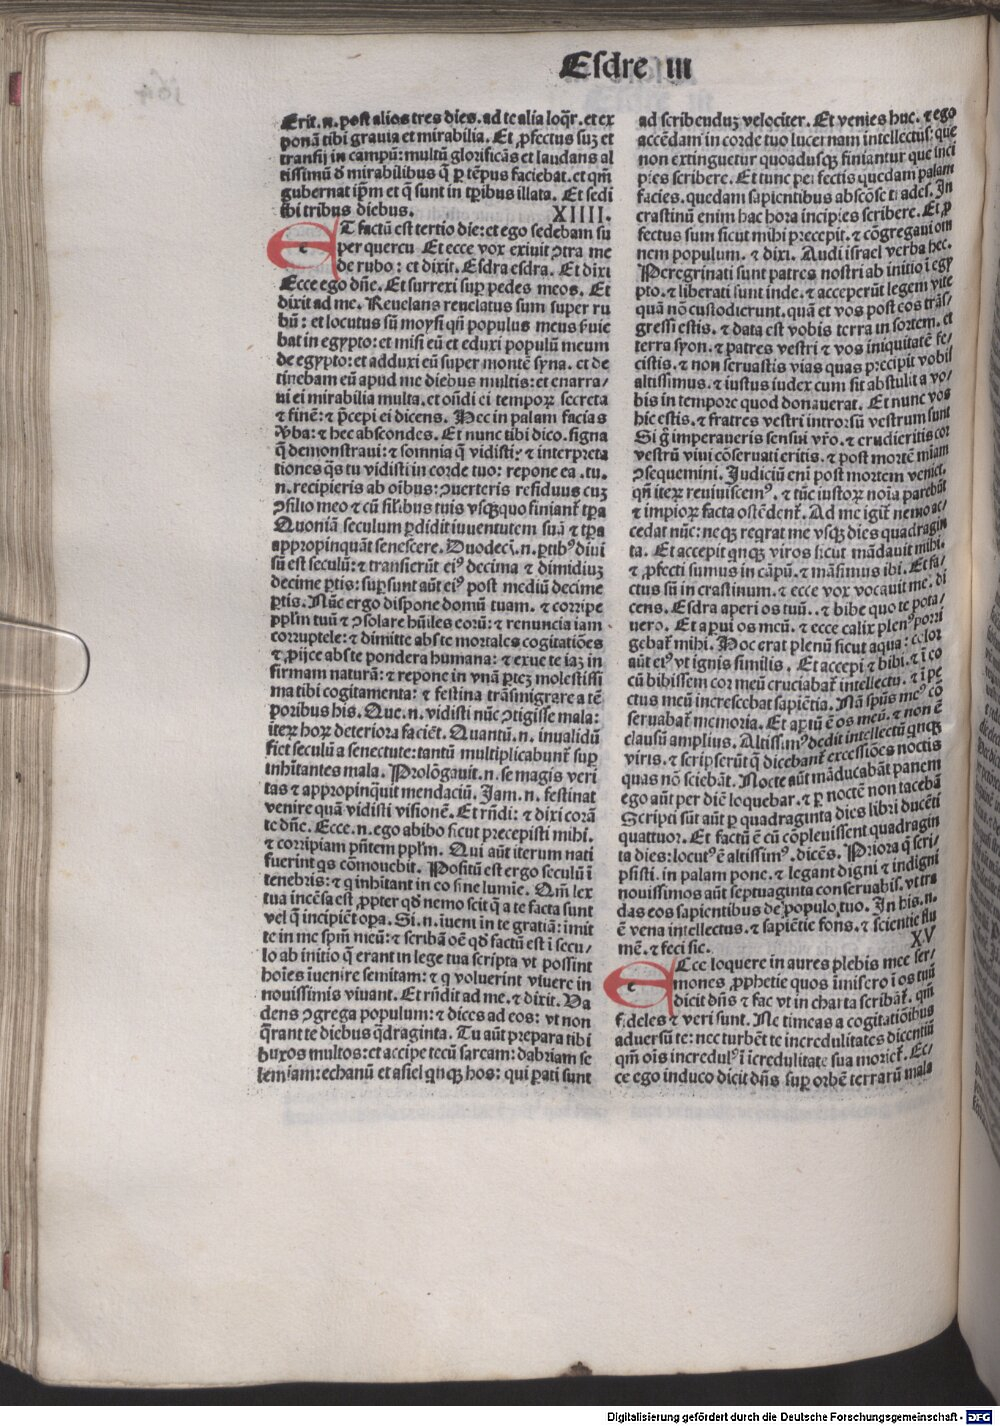 Esdre III
Erit.n.post alios tres dies.ad te alia loq̄r.et ex
ponā tibi grauia et mirabilia. Et ꝓfectus suꝫ et
transij in campū: multū glorificās et laudans al
tissimū ď mirabilibus q̄ ꝑ tēpus faciebat.et qm̄
gubernat ip̄m et q̄ sunt in tp̄ibus illata. Et sedi
ibi tribus diebus. XIIII.
eT factū est tertio die: et ego sedebam su
per quercu Et ecce vox exiuit ꝯtra me
de rubo: et dixit. Esdra esdra. Et dixi
Ecce ego dn̄e. Et surrexi suꝑ pedes meos. Et
dixit ad me. Reuelans reuelatus sum super ru
bū: et locutus sū moysi qn̄ populus meus ẜuie
bat in egypto: et misi eū et eduxi populū meum
de egypto: et adduxi eū super montē syna. et de
tinebam eū apud me diebus multis: et enarra/
ui ei mirabilia multa. et on̄di ei temporꝝ secreta
⁊ finē: ⁊ p̄cepi ei dicens. Hec in palam facias
v̓ba: ⁊ hec abscondes. Et nunc tibi dico. signa
q̄ demonstraui: ⁊ somnia q̄ vidisti: ⁊ interpreta
tiones q̄s tu vidisti in corde tuo: repone ea.tu.
n.recipieris ab oı̄bus: ꝯuerteris residuus cuꝫ
ꝯsilio meo ⁊ cū silibus tuis vsqꝫquo finiant᷑ tꝑa
Quoniā seculum ꝑdidit iuuentutem suā ⁊ tꝑa
appropinquāt senescere. Duodecı̄.n.ꝑtibꝰ diui
sū est seculū: ⁊ transierūt eiꝰ decima ⁊ dimidiuꝫ
decime ꝑtis: suꝑsunt aūt eiꝰ post mediū decime
ꝑtis. Nūc ergo dispone domū tuam. ⁊ corripe
pp̄lm tuū ⁊ ꝯsolare hūiles eorū: ⁊ renuncia iam
corruptele: ⁊ dimitte abs te mortales cogitatiōes
⁊ ꝓijce abs te pondera humana: ⁊ exue te iaꝫ in
firmam naturā: ⁊ repone in vnā ꝑteꝫ molestissi
ma tibi cogitamenta: ⁊ festina trāsmigrare a tē
ꝑoribus his. Que.n.vidisti nūc ꝯtigisse mala:
iterꝝ horꝝ deteriora faciēt. Quantū.n.inualidū
fiet seculū a senectute: tantū multiplicabunt᷑ suꝑ
inhı̄tantes mala. Prolōgauit.n.se magis veri
tas ⁊ appropinquit mendaciū. Jam.n.festinat
venire quā vidisti visionē. Et rn̄di: ⁊ dixi corā
te dn̄e. Ecce.n.ego abibo sicut precepisti mihi.
⁊ corripiam pn̄tem pp̄lm. Qui aūt iterum nati
fuerint qs cōmouebit. Positū est ergo seculū ı̄
tenebris: ⁊ q inhı̄tant in eo sine lumı̄e. Qm̄ lex
tua incēsa est ꝓpter qd̄ nemo scit q̄ a te facta sunt
vel q̄ incipiēt oꝑa. Si.n.iueni in te gratiā: imit
te in me sp̄m meū: ⁊ scribā oē qd̄ factū est ı̄ secu/
lo ab initio q̄ erant in lege tua scripta vt possint
hoı̄es ı̄uenire semitam: ⁊ q voluerint viuere in
nouissimis viuant. Et rn̄dit ad me. ⁊ dixit. Va
dens ꝯgrega populum: ⁊ dices ad eos: vt non
q̄rant te diebus q̄draginta. Tu aūt prepara tibi
buxos multos: et accipe tecū sarcam: dabriam se
lemiam: echanū et asiel qnqꝫ hos: qui ꝑati sunt
ad scribenduꝫ velociter. Et venies huc. ⁊ ego
accēdam in corde tuo lucernam intellectus: que
non extinguetur quoadusqꝫ finiantur que inci
pies scribere. Et tunc perfectis quedam palam
facies. quedam sapientibus abscōse trades. In
crastinū enim hac hora incipies scribere. Et ꝓ
fectus sum sicut mihi precepit. ⁊ cōgregaui om
nem populum. ⁊ dixi. Audi israel verba hec.
Peregrinati sunt patres nostri ab initio ı̄ egy
pto. ⁊ liberati sunt inde. ⁊ acceperūt legem vite
quā nō custodierunt. quā et vos post eos trās/
gressi estis. ⁊ data est vobis terra in sortem. et
terra syon. ⁊ patres vestri ⁊ vos iniquitatē fe/
cistis. ⁊ non seruastis vias quas precipit vobis
altissimus. ⁊ iustus iudex cum sit abstulit a vo/
bis in tempore quod donauerat. Et nunc vos
hic estis. ⁊ fratres vestri introrsū vestrum sunt
Si g̊ imperaueris sensui vr̄o. ⁊ erudieritis cor
vestrū viui cōseruati eritis. ⁊ post mortē mı̄am
ꝯsequemini. Judiciū eni post mortem veniet.
qn̄ iterꝝ reuiuiscemꝰ. ⁊ tūc iustorꝝ noı̄a parebūt
⁊ impiorꝝ facta ostēdent᷑. Ad me igit᷑ nemo ac/
cedat nūc: neqꝫ reqrat me vsqꝫ dies quadragin
ta. Et accepit qnqꝫ viros sicut mādauit mihi.
⁊ ꝓfecti sumus in cāpū. ⁊ māsimus ibi. Et fa/
ctus sū in crastinum. ⁊ ecce vox vocauit me. di
cens. Esdra aperi os tuū.. ⁊ bibe quo te pota/
uero. Et aꝑui os meū. ⁊ ecce calix plenꝰ porri
gebat᷑ mihi. Hoc erat plenū sicut aqua: color
aūt eiꝰ vt ignis similis. Et accepi ⁊ bibi. ⁊ ı̄ eo
cū bibissem cor meū cruciabat᷑ intellectu. ⁊ ı̄ pe
ctus meū increscebat sapiētia. Nā sp̄us meꝰ cō
seruabat᷑ memoria. Et aꝑtū ē os meū. ⁊ non ē
clausū amplius. Altissimꝰ dedit intellectū qnqꝫ
viris. ⁊ scripserūt q̄ dicebant᷑ excessiōes noctis
quas nō sciebāt. Nocte aūt māducabāt panem
ego aūt per diē loquebar. ⁊ ꝑ noctē non tacebā
Scripti sūt aūt ꝑ quadraginta dies libri ducēti
quattuor. Et factū ē cū cōpleuissent quadragin
ta dies: locutꝰ ē altissimꝰ. dicēs. Priora q̄ scri/
psisti. in palam pone. ⁊ legant digni ⁊ indigni
nouissimos aūt septuaginta conseruabis. vt tra
das eos sapientibus de populo tuo. In his.n.
ē vena intellectus. ⁊ sapiētie fons. ⁊ scientie flu
mē. ⁊ feci sic. XV
eCce loquere in aures plebis mee ser/
mones ꝓphetie quos ı̄misero ı̄ os tuū
dicit dn̄s ⁊ fac vt in charta scribāt᷑. qm̄
fideles ⁊ veri sunt. Ne timeas a cogitatiōibus
aduersū te: nec turbēt te incredulitates dicentiū
qm̄ oı̄s incredulꝰ ı̄ ı̄credulitate sua moriet᷑. Ec/
ce ego induco dicit dn̄s suꝑ orbē terrarū mala
Digitalisierung gefördert durch die Deutsche Forschungsgemeinschaft - DFG